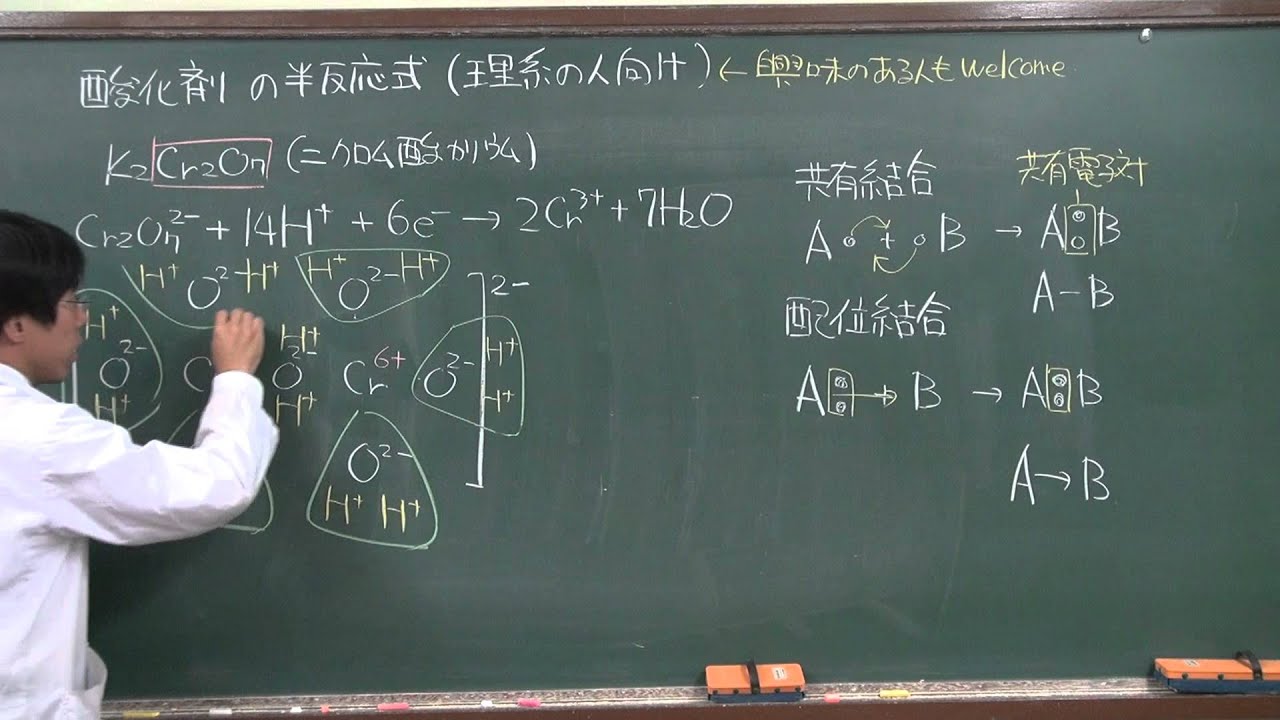 酸化剤の半反応式(理系の人向け)←興味のある人もwelcome
K2Cr2O7(ニクロム酸カリウム)
Cr2O7²⁻+14H⁺+6e⁻→2Cr³⁺+7H2O
H⁺ O²⁻ H⁺ H⁺ O²⁻ H⁺
]²⁻
H⁺ O²⁻ H⁺
H⁺ O²⁻ H⁺
Cr⁶⁺
O²⁻ H⁺ H⁺
O²⁻
H⁺ H⁺
共有結合
共有電子対
A + B → A B
A-B
配位結合
A → B → A B
A→B